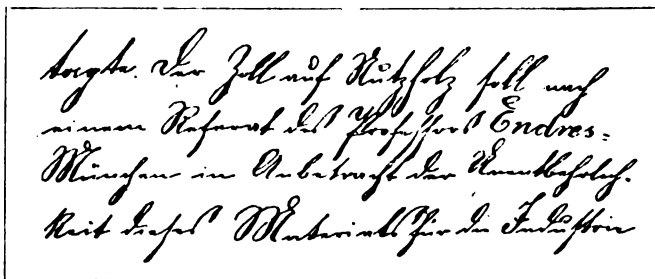 tagte. Der Zoll auf Nutzholz soll nach
einem Referat des Professors Endres-
München in Anbetracht der Unentbehrlich-
keit dieses Materials für die Industrie